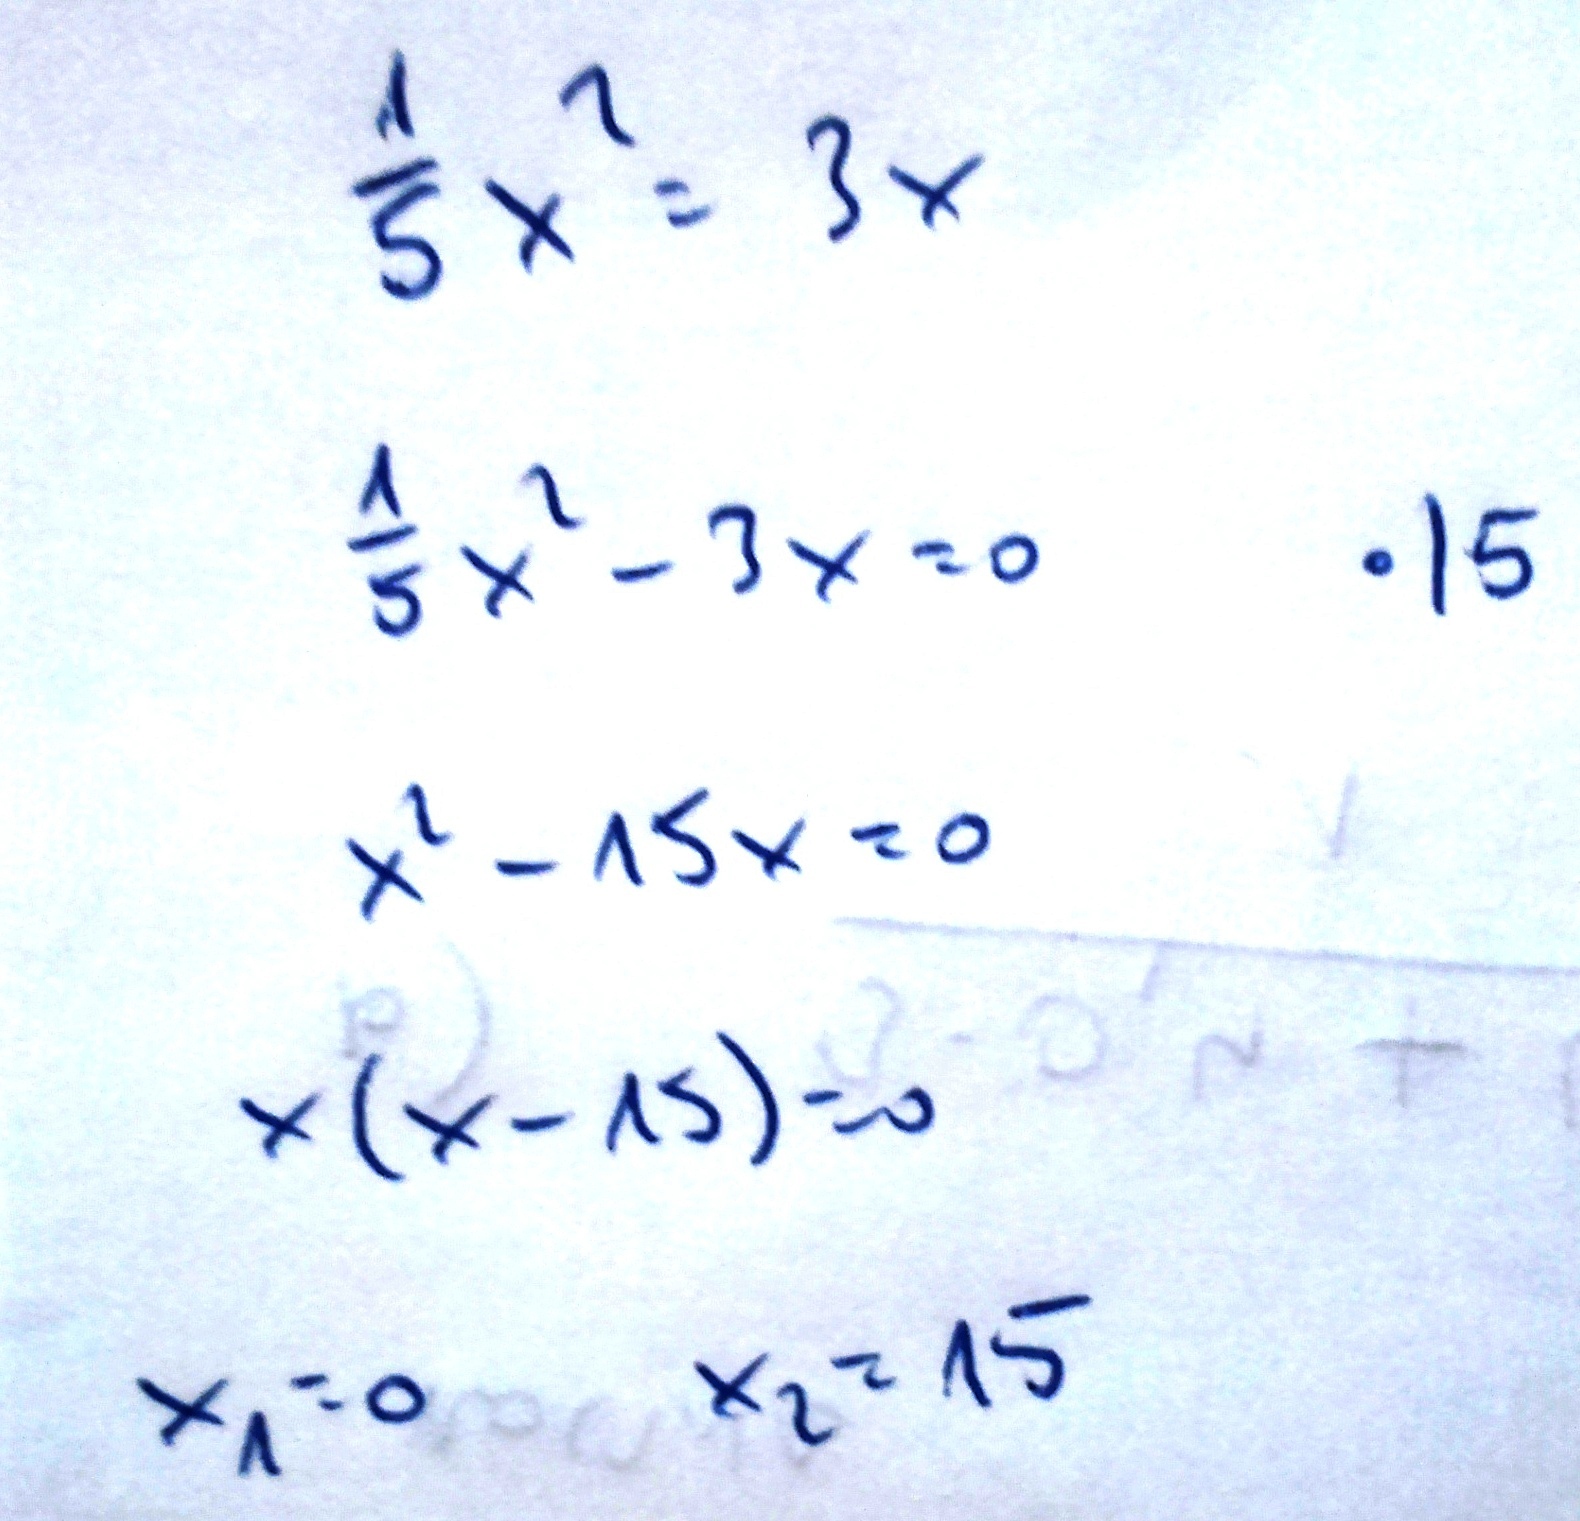 1/5 x² = 3x
1/5 x² - 3x = 0 ·|5
x² - 15x = 0
x(x - 15) = 0
x₁ = 0 x₂ = 15